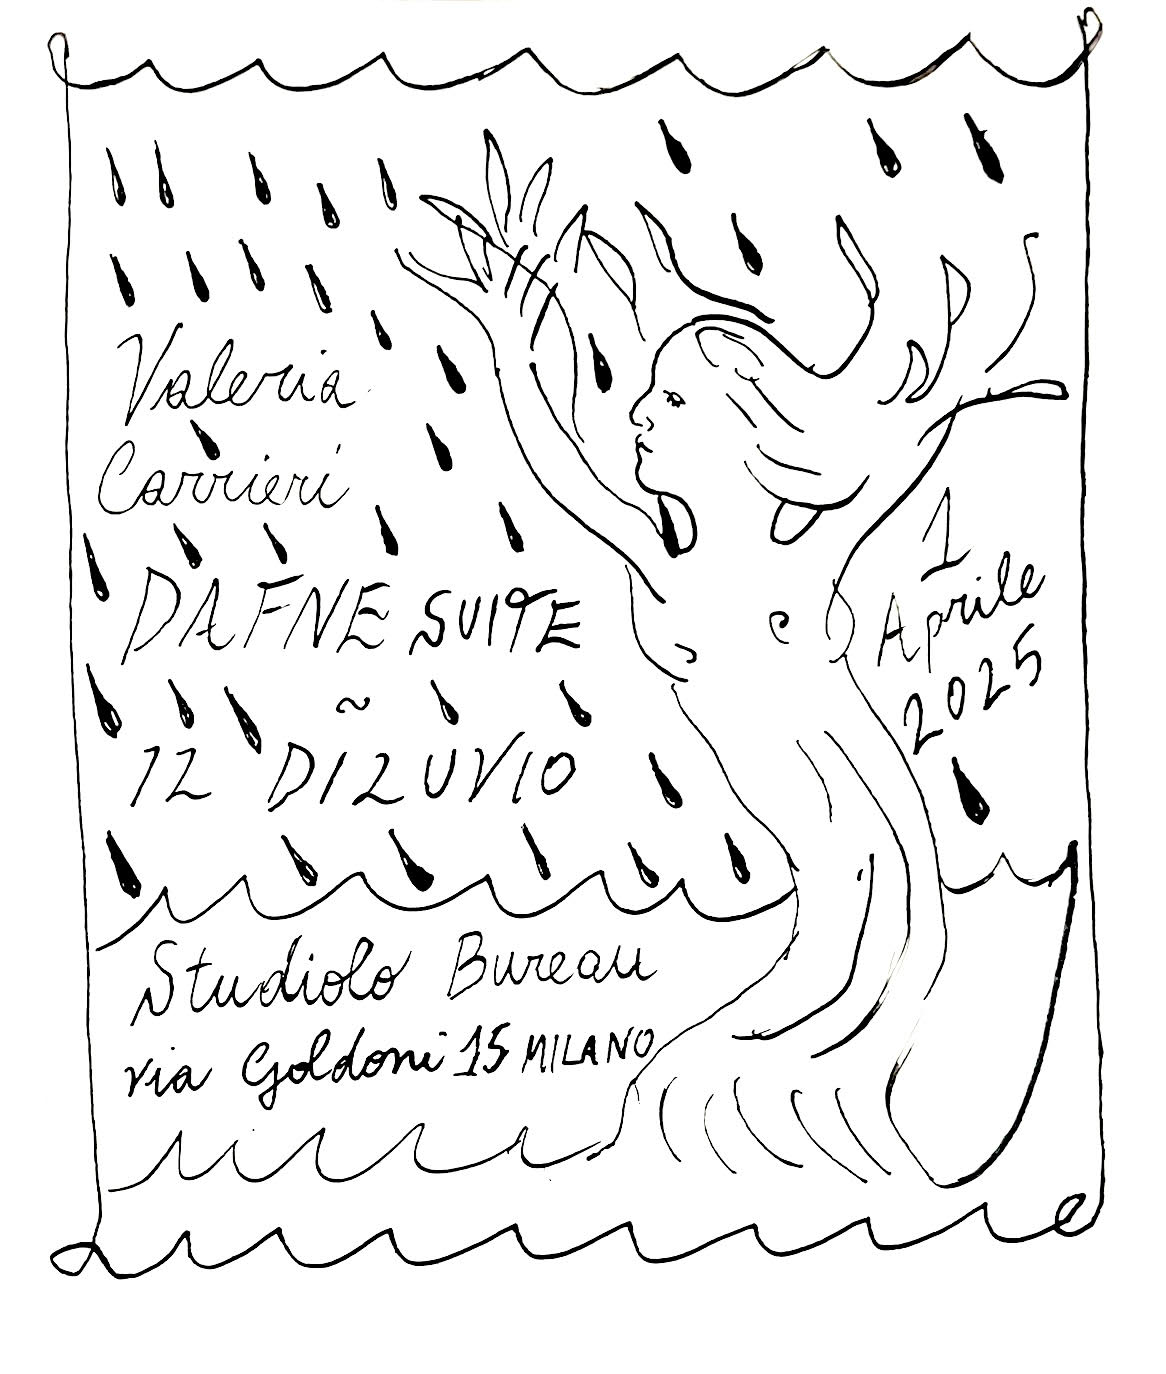 Valeria
Carrieri
DAFNE SUITE
~
IL DILUVIO
1
Aprile
2025
Studiolo Bureau
via Goldoni 15 MILANO